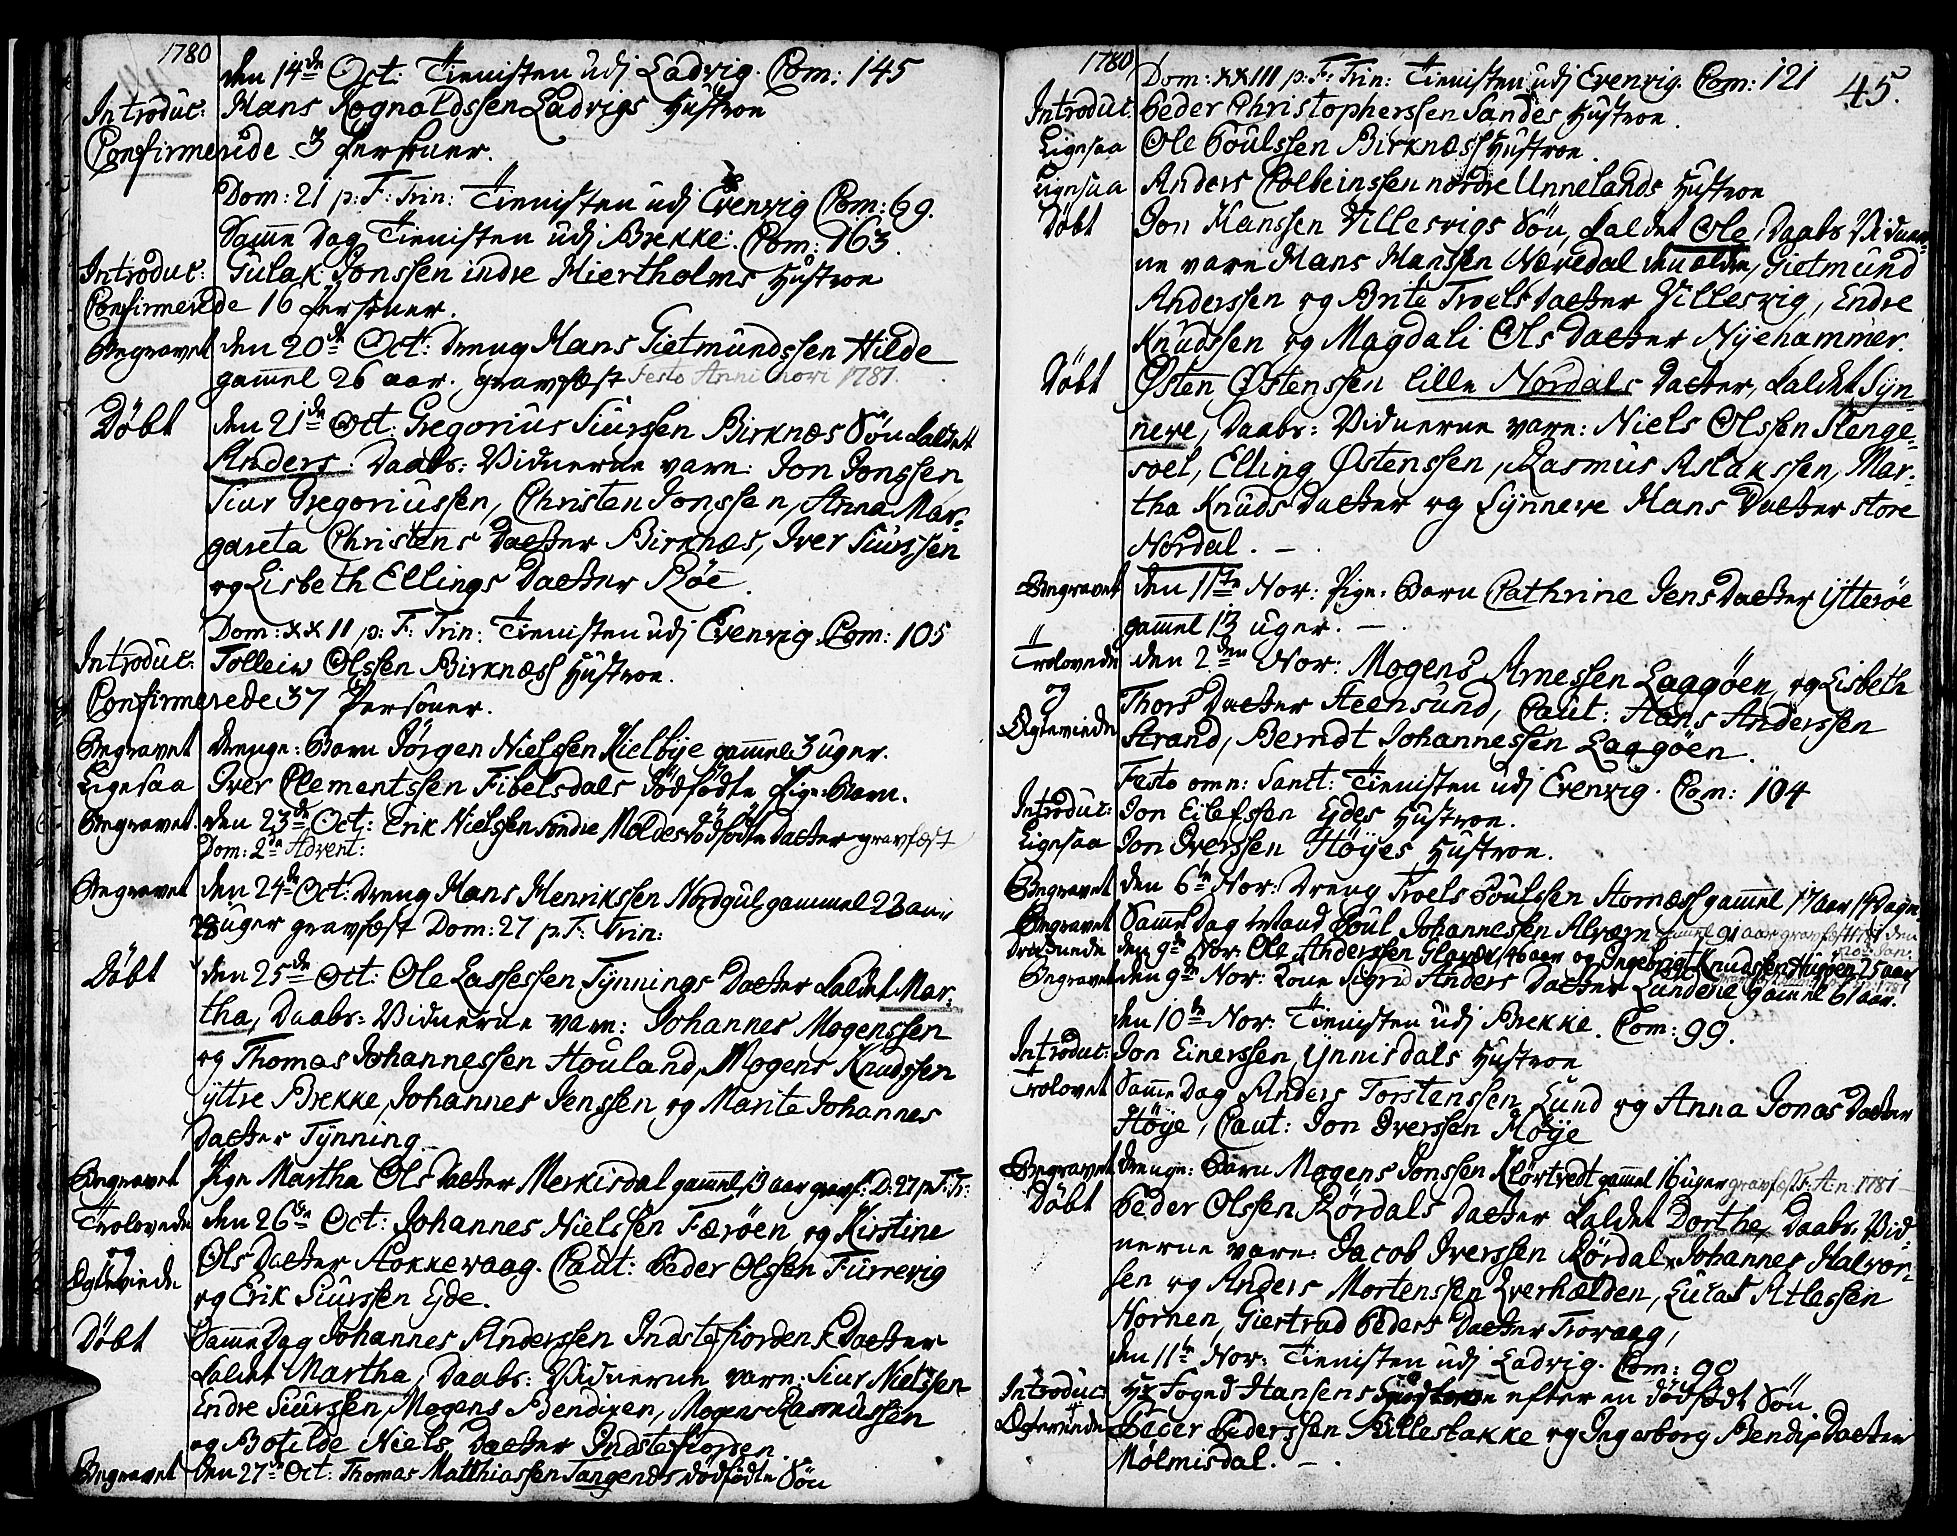 1780
den 14de Oct: Tienisten udj Ladvig. Com: 145
Introduc: Hans Rognaldssen Ladvigs Hustroe
Confirmerede 3 Personer.
Dom: 21 p: F: Trin: Tienisten udj Evenvig Com: 69.
Samme Dag Tienisten udj Brekke: Com: 163.
Introduc: Gulak Jonssen indre Hiertholms Hustroe
Confirmerede 16 Personer.
Begravet den 20de Oct: Dreng Hans Gietmundssen Hilde
gamel 26 aar. gravfæst Festo Anni novi 1781.
Döbt den 21de Oct: Gregorius Siurssen Birknæs Sön kaldet
Anders. Daabs: Vidnerne vare: Jon Jonssen,
Siur Gregoriussen, Christen Jonssen, Anna Mar-
gareta Christens Datter Birknæs, Iver Siurssen
og Lisbeth Ellings Datter Röe.
Dom: XXII p: F: Trin: Tienisten udj Evenvig. Com: 105
Introduc: Tolleiv Olssen Birknæss Hustroe.
Confirmerede 37 Personer.
Begravet Drenge: Barn Jörgen Nielssen Kielbye gammel 3 uger.
Ligesaa Iver Clementssen Fibelsdals dödfödte Pige-Barn.
Begravet den 23de Oct: Erik Nielssen söndre Moldes dödfödte Datter gravfæst
Dom: 2de Advent:
Begravet den 24de Oct: Dreng Hans Henrikssen Nordgul gammel 23 aar
uger gravfæst Dom: 27 p: F: Trin:
Döbt den 25de Oct: Ole Lassessen Tynnings Datter kaldet Mar-
tha, Daabs: Vidnerne vare: Johannes Mogenssen
og Thomas Johannessen Houland, Mogens Knudssen
yttre Brekke, Johannes Jenssen og Marite Johannes
Datter Tynning.
Begravet Pige Martha Ols Datter Merkisdal gammel 13 aar gravf: D: 27 p: F: Tr:
Trolovede den 26de Oct: Johannes Nielssen Færöen og Kirstine
og Ols Datter Stokkevaag. Caut: Peder Olssen Furrevig
Ægteviede og Erik Siurssen Eyde.
Döbt Samme Dag Johannes Anderssen Indstefiordens Datter
kaldet Martha, Daabs: Vidnerne vare: Siur Nielssen
Endre Siurssen, Mogens Bendixen, Mogens Rasmussen
og Botilde Niels Datter Indstefiorden.
Begravet den 27de Oct: Thomas Matthiassen Tangends dödfödte Sön
1780
45.
Dom: XXIII p: F: Trin: Tienisten udj Evenvig. Com: 121
Introduc: Peder Christopherssen Sandes Hustroe.
Ligesaa Ole Poulssen Birknæss Hustroe.
Ligesaa Anders Colbeinssen nordre Unnelands Hustroe
Döbt Jon Hanssen Yillesvigs Sön, kaldet Ole, Daabs Vidner-
ne vare Hans Hanssen Næredal den ældre, Gietmund
Anderssen og Brite Troels Datter Yillesvig, Endre
Knudssen og Magdali Ols Datter Nyehammer.
Döbt Østen Østenssen lille Nordals Datter, kaldet Syn-
neve, Daabs: Vidnerne vare: Niels Olssen Stenge-
soel, Elling Østenssen, Rasmus Aslakssen, Mar-
tha Knuds Datter og Synneve Hans Datter store
Nordal. —
Begravet den 11te Nov: Pige-Barn Cathrine Jens Datter ytteröe
gammel 13 uger. —
Trolovede den 2den Nov: Mogens Arnessen Laggöen, og Lisbeth
og Thors Datter Steensund, Caut: Hans Anderssen
Ægteviede Strand, Berndt Johannessen Laggöen.
Festo omn: Sanct: Tienisten udj Evenvig. Com: 104
Introduc: Jon Eilefssen Eydes Hustroe.
Ligesaa Jon Iverssen Höyes Hustroe.
Begravet den 6te Nov: Dreng Troels Poulssen Stornæss gammel 17 aar 14 Dage.
Begravet Samme Dag Mand Poul Johannessen Alværn gammel 91 aar gravfæstet den
den 9de Nov: Ole Anderssen 46 aar og Ingebrigt Knudssen 25 aar
Begravet den 9de Nov: Kone Sigrid Anders Datter Lundene gamel 61 aar.
den 10de Nov: Tienisten udj Brekke. Com: 99.
Introduc: Jon Einerssen Ynnisdals Hustroe
Trolovet Samme Dag Anders Torstenssen Lund og Anna Jonas Datter
Höye, Caut: Jon Iverssen Höye
Begravet Drenge: Barn Mogens Jonssen Klörtvedt gamel 16 uger gravfæst F: An: 1781
Döbt Peder Olssen Rördals Datter kaldet Dorthe, Daabs: Vid-
nerne vare: Jacob Iverssen Rördal, Johannes Halvor-
sen og Anders Mortenssen Qverhælden, Lucas Atlessen
Nornen, Giertrud Peders Datter Trovaag,
den 11te Nov: Tienisten udj Ladvig. Com: 90
Introduc: Hr Foged Hansens efter en dödfödt Sön
Ægteviede Peder Pederssen Hillestakke og Ingeborg Bendix Datter
Mölmisdal. —